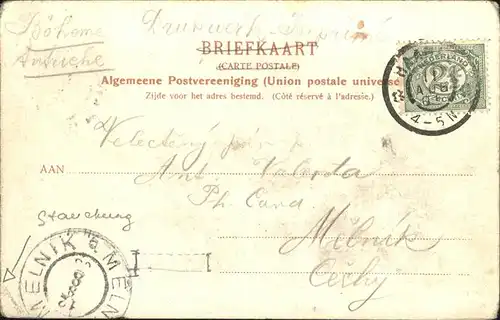 Böhome Drukwerk Imprimé
Autriche
BRIEFKAART
(CARTE POSTALE)
Algemeene Postvereeniging (Union postale universe
Zijde voor het adres bestemd. (Côté réservé à l'adresse.)
NEDERLAND
2½
4-5N
Velectěný pán
AAN Ant. Valenta
Ph. Cand.
Mělník
Čechy
Stauchung
MELNIK a MELN